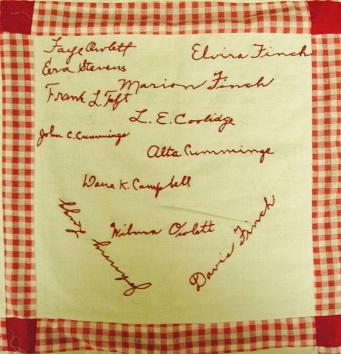 Faye Owlett
Elvira Finch
Erva Stevens
Marion Finch
Frank L. Taft
L. E. Coolidge
John C. Cummings
Alta Cummings
Dana K. Campbell
Wilma Owlett
Davis Finch